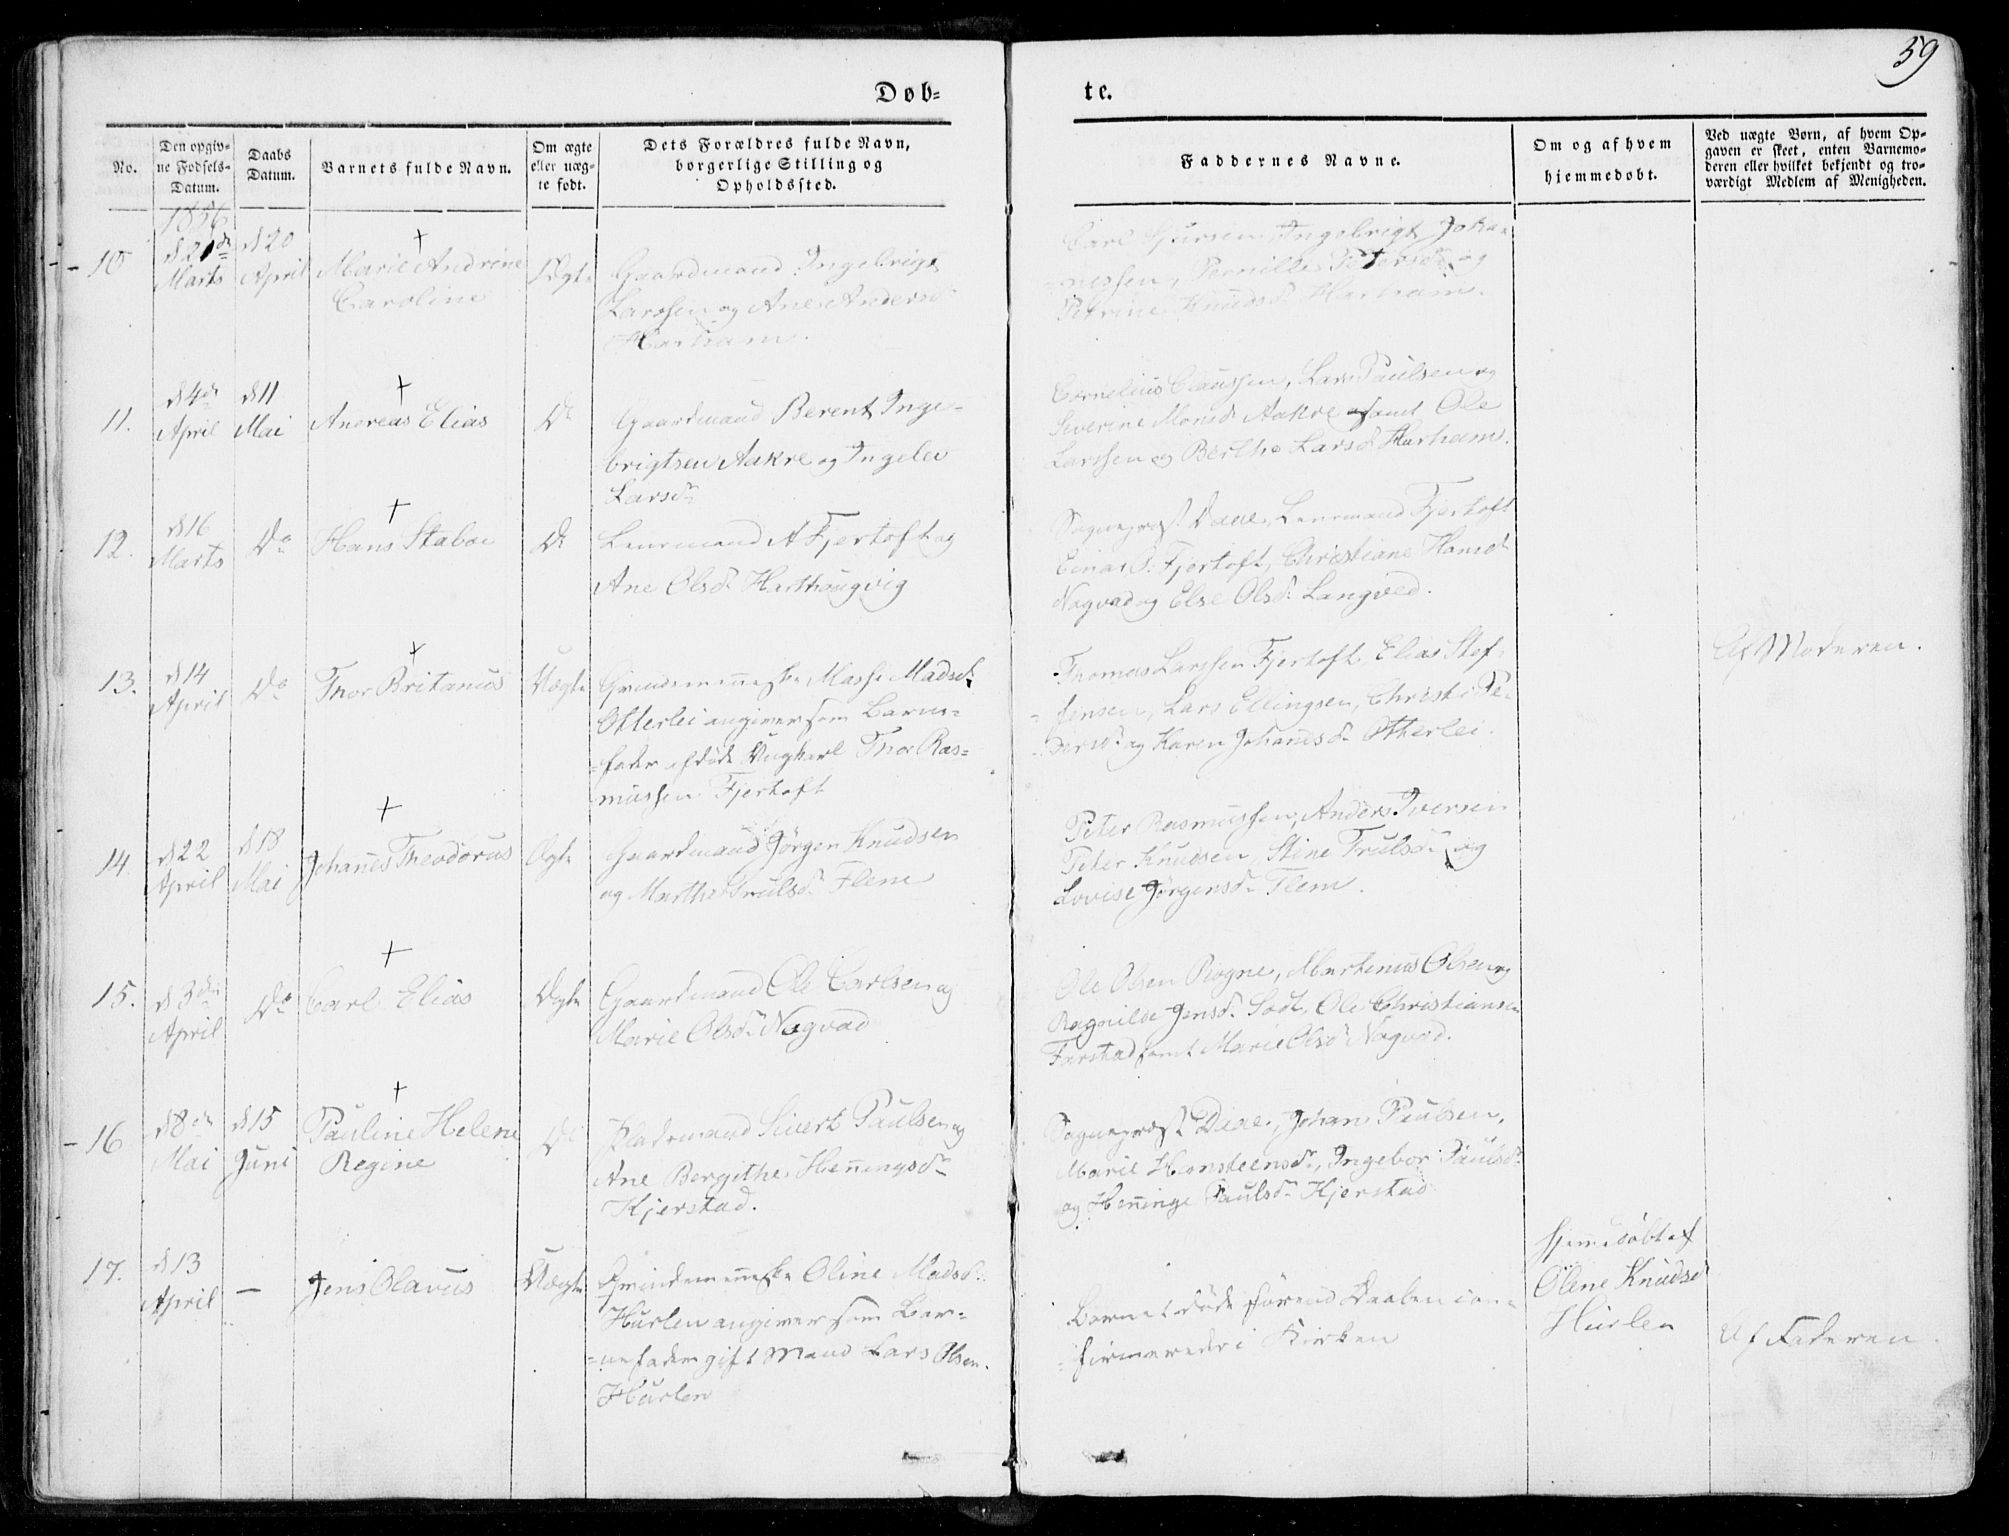 59
Døb=
te.
No.
Den opgiv-
ne Fødsels-
Datum.
Daabs
Datum.
Barnets fulde Navn.
Om ægte
eller uæg-
te født.
Dets Forældres fulde Navn,
borgerlige Stilling og
Opholdssted.
Faddernes Navne.
Om og af hvem
hjemmedøbt.
Ved uægte Børn, af hvem Op-
gaven er skeet, enten Barnemo-
deren eller hvilket bekjendt og tro-
værdigt Medlem af Menigheden.
1856
10
d 21de
Marts
d 20
April
Marie Andrine
Caroline
Ægte
Gaardmand Ingebrigt
Larssen og Ane Andersd
Harham.
Carl Sjursen, Ingebrigt Joha-
nessen, Pernille Petersd og
Petrine Knudsd Harham.
11.
d 4de
April
d 11
Mai
Andreas Elias
Do
Gaardmand Berent Inge-
brigtsen Aakre og Ingelev
Larsdr
Cornelius Claussen, Lars Paulsen og
Severine Monsdr Aakre samt Ole
Larssen og Berthe Larsd Harham.
12.
d 16
Marts
Do
Hans Staboe
Do
Lensmand A Fjertoft og
Ane Olsdr Helthougvig
Sognepræst Daae, Lensmand Fjertoft
Einar O. Fjertoft, Christiane Hansdr
Nogvad og Else Olsdr Langved.
13.
d 14
April
Do
Thor Britanius
Uægte
Qvindemenneske Masse Madsdr
Otterlei angiver som Barne-
fader afdøde Ungkarl Thor Ras-
mussen Fjertoft
Thomas Larssen Fjertoft, Elias Stef-
fensen, Lars Ellingsen, Christi Pe-
dersdr og Karen Johansdr Otterlei.
Af Moderen.
14.
d 22
April
d 18
Mai
Johanes Theodorus
Ægte
Gaardmand Jørgen Knudsen
og Marthe Trulsdr Flem
Peter Rasmussen, Anders Iversen
Peter Knudsen, Stine Trulsdr og
Lovise Jørgensdr Flem.
15.
d 3die
April
Do
Carl Elias
Ægte
Gaardmand Ole Carlsen og
Marie Olsdr Nogvad
Ole Olsen Rogne, Martinus Olsen og
Ragnilde Jensdr Ole Christiansen
Farstad samt Marie Olsdr Nogvad.
16
d 8de
Mai
d 15
Juni
Pauline Helene
Regine
Do
Pladsmand Sivert Paulsen og
Ane Bergithe Henningsdr
Kjerstad.
Sognepræst Daae, Johan Paulsen,
Marie Hansteensdr, Ingebor Paulsdr
og Henninge Paulsdr Kjerstad
17.
d 13
April
—
Jens Olavus
Uægte
Qvindemenneske Oline Madsdr
Hurlen angiver som Bar-
nefader gift Mand Lars Olsen
Hurlen
Barnet døde førend Daaben con-
firmeredes i Kirken
Hjemmedøbt af
Olene Knudsd
Hurlen
Af Faderen.